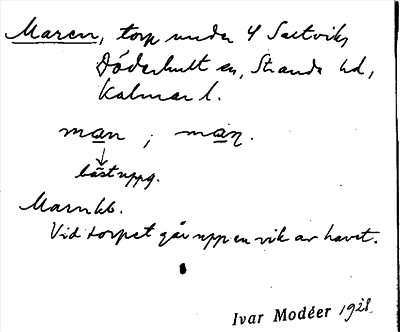 Maren, torp under 4 Saltvik,
Döderhult sn, Stranda hd,
Kalmar l.
man ; maṇ.
bäst uppg.
Marnkb.
Vid torpet går upp en vik av havet.
Ivar Modéer 1928